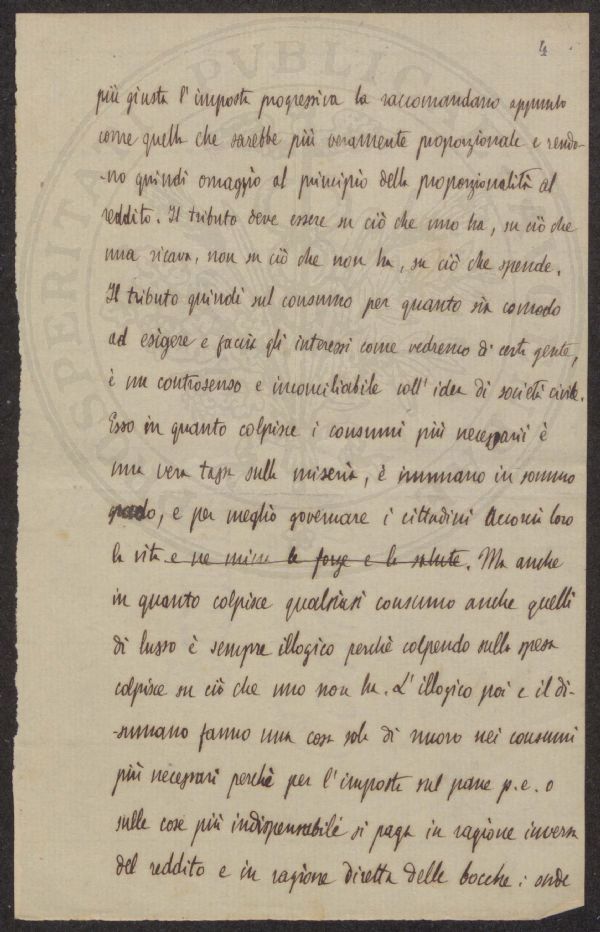 4
più giusta l'imposta progressiva la raccomandano appunto
come quella che sarebbe più veramente proporzionale e rendo-
-no quindi omaggio al principio della proporzionalità al
reddito. Il tributo deve essere su ciò che uno ha, su ciò che
uno ricava, non su ciò che non ha, su ciò che spende.
Il tributo quindi sul consumo per quanto sia comodo
ad esigere e faccia gli interessi come vedremo di certa gente,
è un controsenso e inconciliabile coll'idea di società civile.
Esso in quanto colpisce i consumi più necessarii è
una vera tassa sulla miseria, è inumano in sommo
grado, e per meglio governare i cittadini accorcia loro
la vita e ne mina le forze e la salute. Ma anche
in quanto colpisce qualsiasi consumo anche quelli
di lusso è sempre illogico perchè colpendo sulla spesa
colpisce su ciò che uno non ha. L'illogico poi e il di-
-sumano fanno una cosa sola di nuovo nei consumi
più necessari perchè per l'imposta sul pane p.e. o
sulle cose più indispensabile si paga in ragione inversa
del reddito e in ragione diretta delle bocche: onde